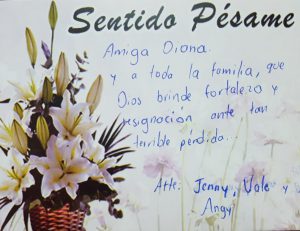 Sentido Pésame
Amiga Diana.
y a toda la familia, que
Dios brinde fortaleza y
resignación ante tan
terrible pérdida...
Atte: Jenny, Vale y
Angy